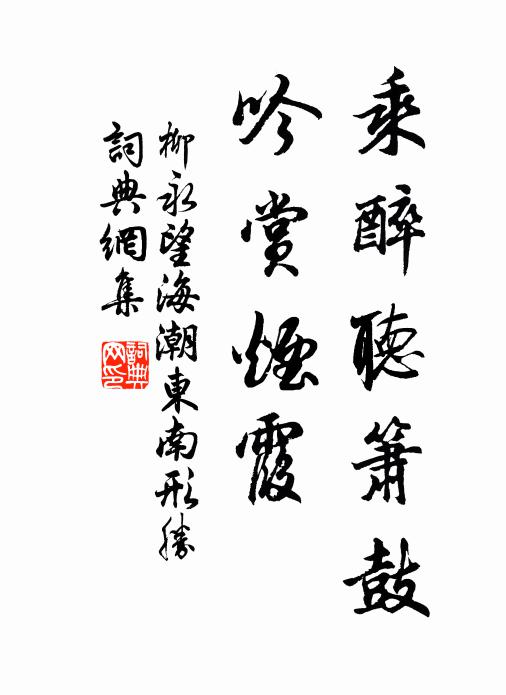 乘醉聽簫鼓
吟賞煙霞
柳永望海潮東南形勝
詞典網集
詞典網印